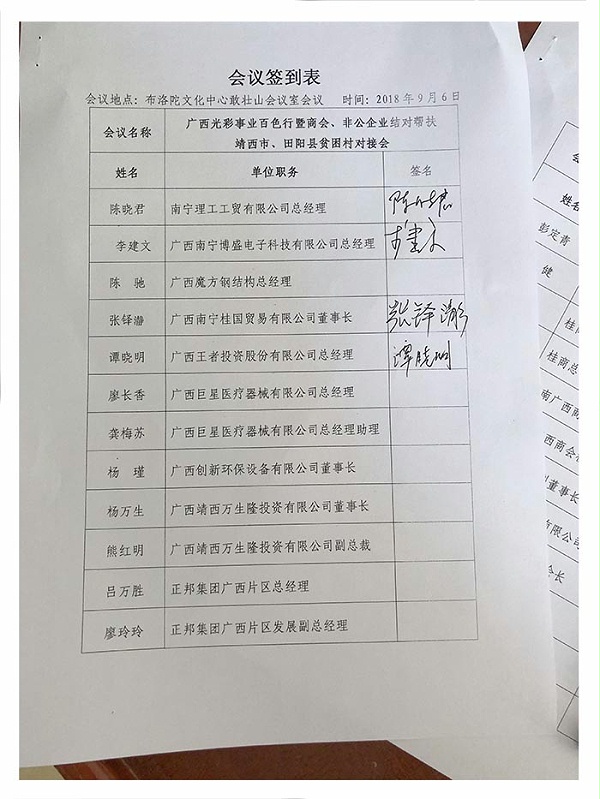 会议签到表
会议地点：布洛陀文化中心敢壮山会议室会议 时间：2018年9月6日
会议名称 广西光彩事业百色行暨商会、非公企业结对帮扶
靖西市、田阳县贫困村对接会
姓名 单位职务 签名
陈晓君 南宁理工工贸有限公司总经理 陈晓君
李建文 广西南宁博盛电子科技有限公司总经理 李建文
陈 驰 广西魔方钢结构总经理
张铎瀞 广西南宁桂国贸易有限公司董事长
谭晓明 广西王者投资股份有限公司总经理 谭晓明
廖长香 广西巨星医疗器械有限公司总经理
龚梅苏 广西巨星医疗器械有限公司总经理助理
杨 瑾 广西创新环保设备有限公司董事长
杨万生 广西靖西万生隆投资有限公司董事长
熊红明 广西靖西万生隆投资有限公司副总裁
吕万胜 正邦集团广西片区总经理
廖玲玲 正邦集团广西片区发展副总经理
姓名
彭定青
健
桂商
桂商总
南广西商
西商会
董事长
有限公司
会长